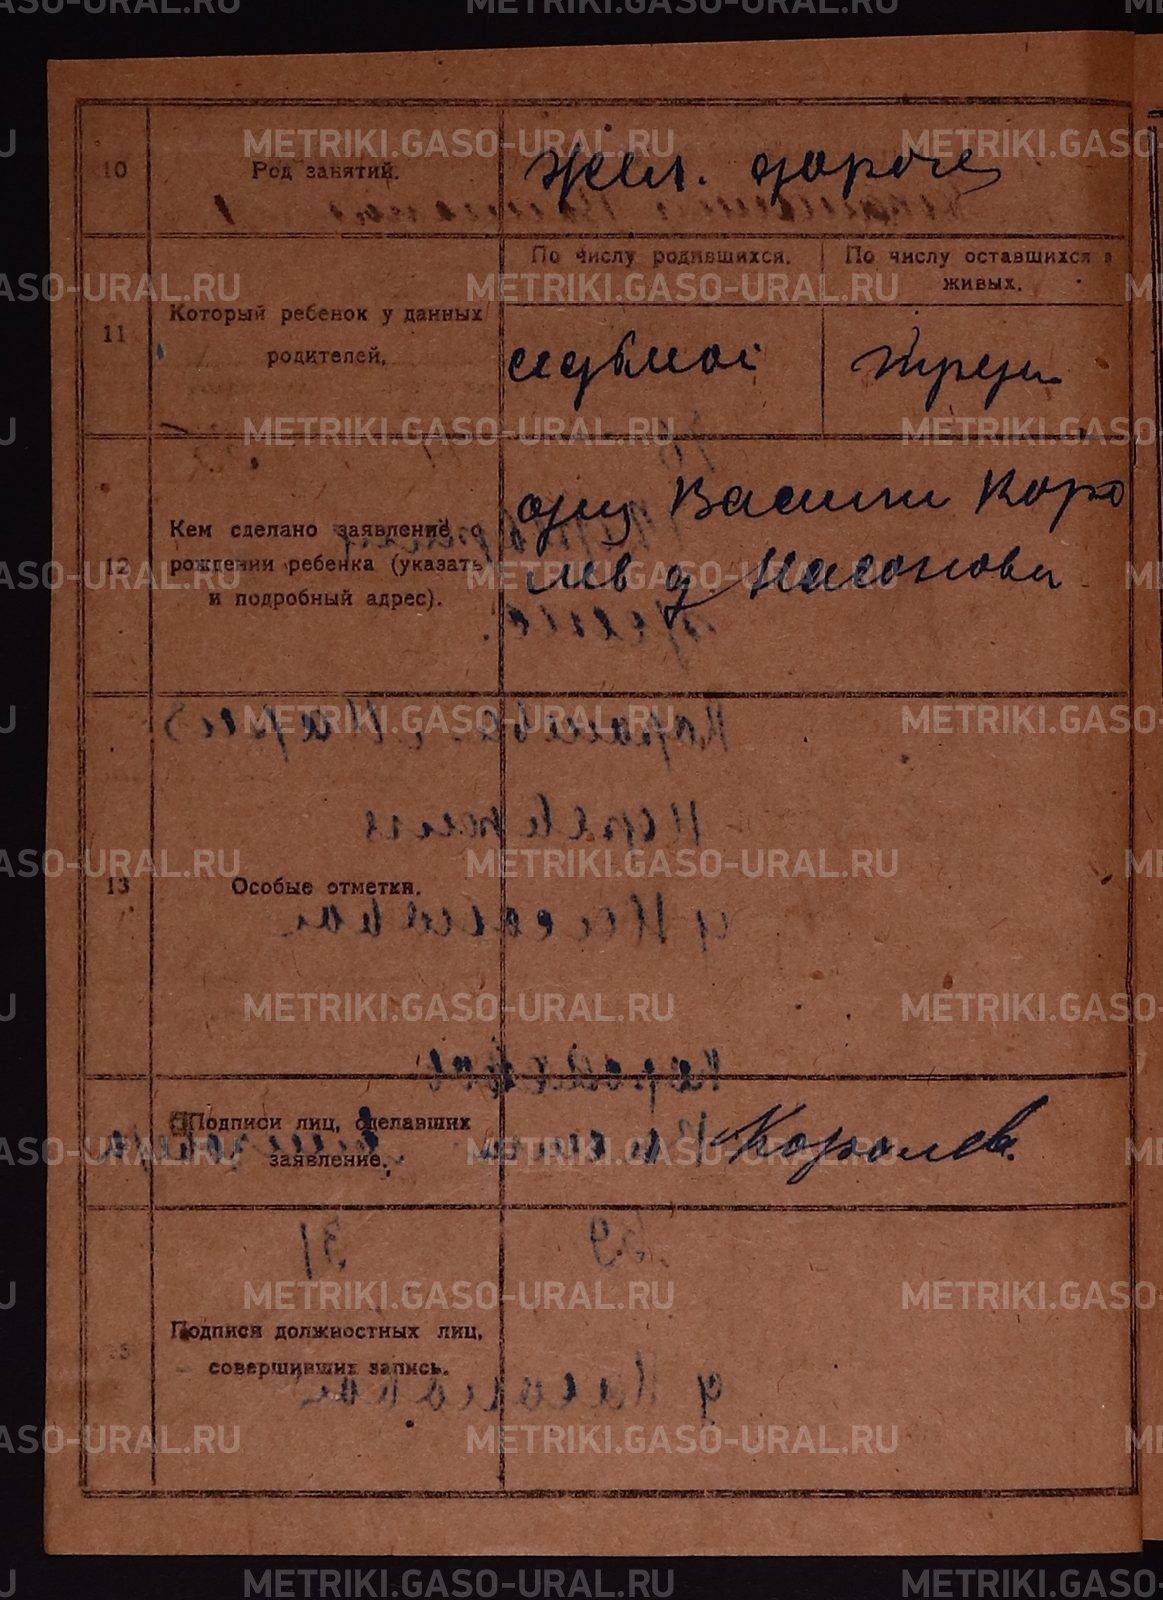 METRIKI.GASO-URAL.RU
10
Род занятий.
Жел. дороге
11
Который ребенок у данных
родителей.
По числу родившихся.
По числу оставшихся в
живых.
седьмой
12
Кем сделано заявление о
рождении ребенка (указать
и подробный адрес).
отец Василий Коро
лев д. Насонова
13
Особые отметки.
Подписи лиц, сделавших
заявление.
Королев
15
Подписи должностных лиц,
совершивших запись.